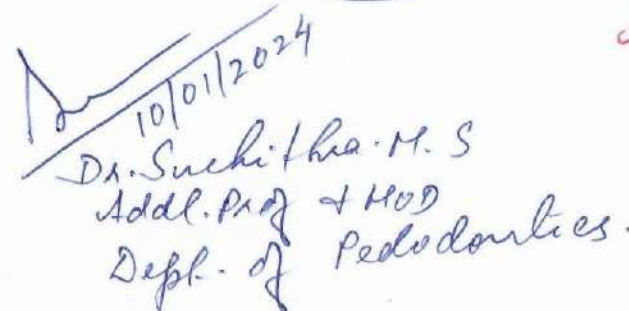 10/01/2024
Dr. Suchithra. M. S
Addl. Prof & HOD
Dept. of Pedodontics.